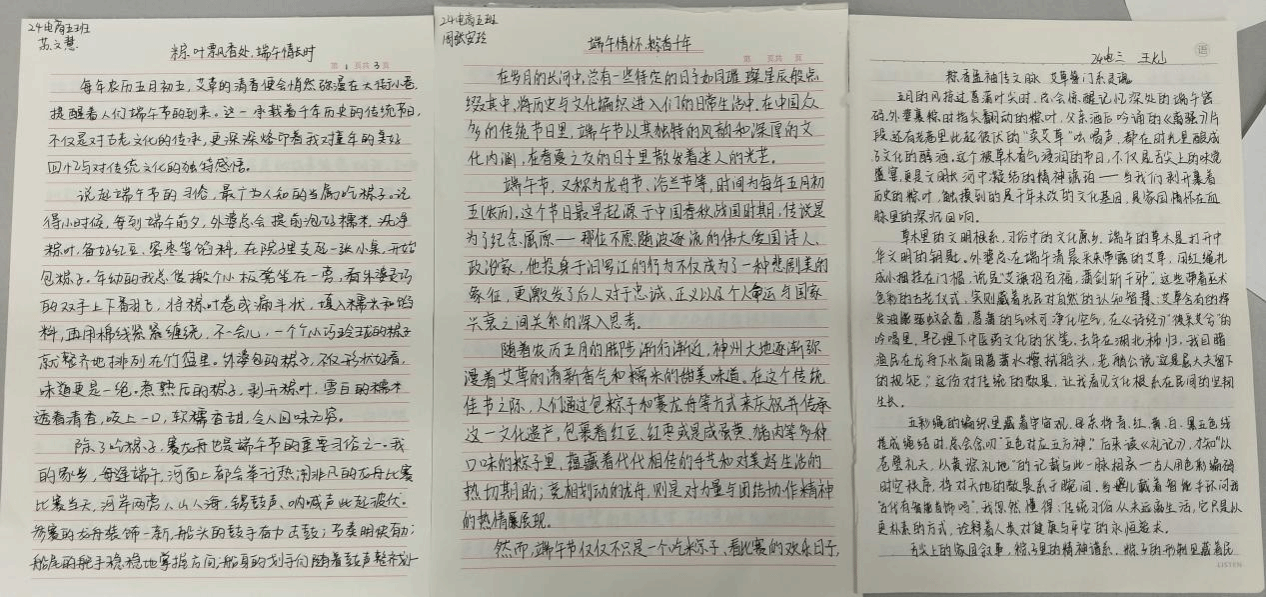 24电商五班
苏文慧
粽叶飘香处,端午情长时
第1页共3页
每年农历五月初五,艾草的清香便会悄然弥漫在大街小巷,
提醒着人们端午节的到来。这一承载着千年历史的传统节日,
不仅是对古老文化的传承,更深深烙印着我对童年的美好
回忆与对传统文化的独特感悟。
说起端午节的习俗,最广为人知的当属吃粽子。记
得小时候,每到端午前夕,外婆总会提前泡好糯米,洗净
粽叶,备好红豆、蜜枣等馅料,在院里支起一张小桌,开始
包粽子。年幼的我总爱搬个小板凳坐在一旁,看外婆灵巧
的双手上下翻飞,将粽叶卷成漏斗状,填入糯米和馅
料,再用棉线紧紧缠绕,不一会儿,一个个小巧玲珑的粽子
就整齐地排列在竹篮里。外婆包的粽子,不仅形状好看,
味道更是一绝。煮熟后的粽子,剥开粽叶,雪白的糯米
透着清香,咬上一口,软糯香甜,令人回味无穷。
除了吃粽子,赛龙舟也是端午节的重要习俗之一。我
的家乡,每逢端午,河面上都会举行热闹非凡的龙舟比赛
比赛当天,河岸两旁人山人海,锣鼓声、呐喊声此起彼伏。
参赛的龙舟装饰一新,船头的鼓手奋力击鼓,节奏明快有力;
船尾的舵手稳稳地掌握方向;船身的划手们随着鼓声整齐划一
24电商五班
周张安玲
端午情怀,粽香千年
第 页共 页
在岁月的长河中,总有一些特定的日子如同璀璨星辰般点
缀其中,将历史与文化编织进人们的日常生活中。在中国众
多的传统节日里,端午节以其独特的风韵和深厚的文
化内涵,在春夏之交的日子里散发着迷人的光芒。
端午节,又称为龙舟节、浴兰节等,时间为每年五月初
五(农历),这个节日最早起源于中国春秋战国时期,传说是
为了纪念屈原——那位不愿随波逐流的伟大爱国诗人、
政治家,他投身于汨罗江的行为不仅成为了一种悲剧美的
象征,更激发了后人对于忠诚、正义以及个人命运与国家
兴衰之间关系的深入思考。
随着农历五月的脚步渐行渐近,神州大地逐渐弥
漫着艾草的清新香气和糯米的甜美味道。在这个传统
佳节之际,人们通过包粽子和赛龙舟等方式来庆祝并传承
这一文化遗产,包裹着红豆、红枣或是咸蛋黄、猪肉等多种
口味的粽子里,蕴藏着代代相传的手艺和对美好生活的
热切期盼;竞相划动的龙舟,则是对力量与团结协作精神
的热情展现。
然而,端午节仅仅不只是一个吃粽子、看比赛的欢乐日子,
语
24电三 王
粽香盈袖传文脉 艾草盈门系灵魂
五月的风掠过菖蒲叶尖时,总会惊醒记忆深处的端午密
码。外婆裹粽时指尖翻动的粽叶,父亲酒后吟诵的《离骚》片
段,还有老巷里此起彼伏的"卖艾草"吆喝声,都在时光里酿成
了文化的醇酒,这个被草木香气浸润的节日,不仅是舌尖上的味觉
盛宴,更是文明长河中凝结的精神琥珀——当我们剥开裹着
历史的粽叶,触摸到的是千年未改的文化基因,是家国情怀在血
脉里的深沉回响。
草木里的文明根系,习俗中的文化原乡。端午的草木是打开中
华文明的钥匙。外婆总在端午清晨采来带露的艾草,用红绳扎
成小捆挂在门楣,说是"艾旗招百福,蒲剑斩千邪"。这些带着巫术
色彩的古老仪式,实则藏着先民对自然的认知智慧:艾草含有的挥
发油能驱蚊杀菌,菖蒲的气味可净化空气,在《诗经》"彼采艾兮"的
吟唱里,早已埋下中医药文化的伏笔。去年在湖北秭归,我目睹
渔民在龙舟下水前用菖蒲水擦拭船头,老艄公说"这是屈大夫留下
的规矩",这份对传统的敬畏,让我看见文化根系在民间的坚韧
生长。
五彩绳的编织里藏着宇宙观。母亲将青、红、黄、白、黑五色线
搓成绳结时,总会念叨"五色对应五方神"。后来读《礼记》,才知"以
苍璧礼天,以黄琮礼地"的记载与此一脉相承——古人用色彩编码
时空秩序,将对天地的敬畏系于腕间。当婴儿戴着智能手环问我
"古代有智能首饰吗",我忽然懂得:传统习俗从未远离生活,它只是以
更朴素的方式,诠释着人类对健康与平安的永恒追求。
舌尖上的家国叙事,粽子里的精神谱系。粽子的形制里藏着民
LISTEN